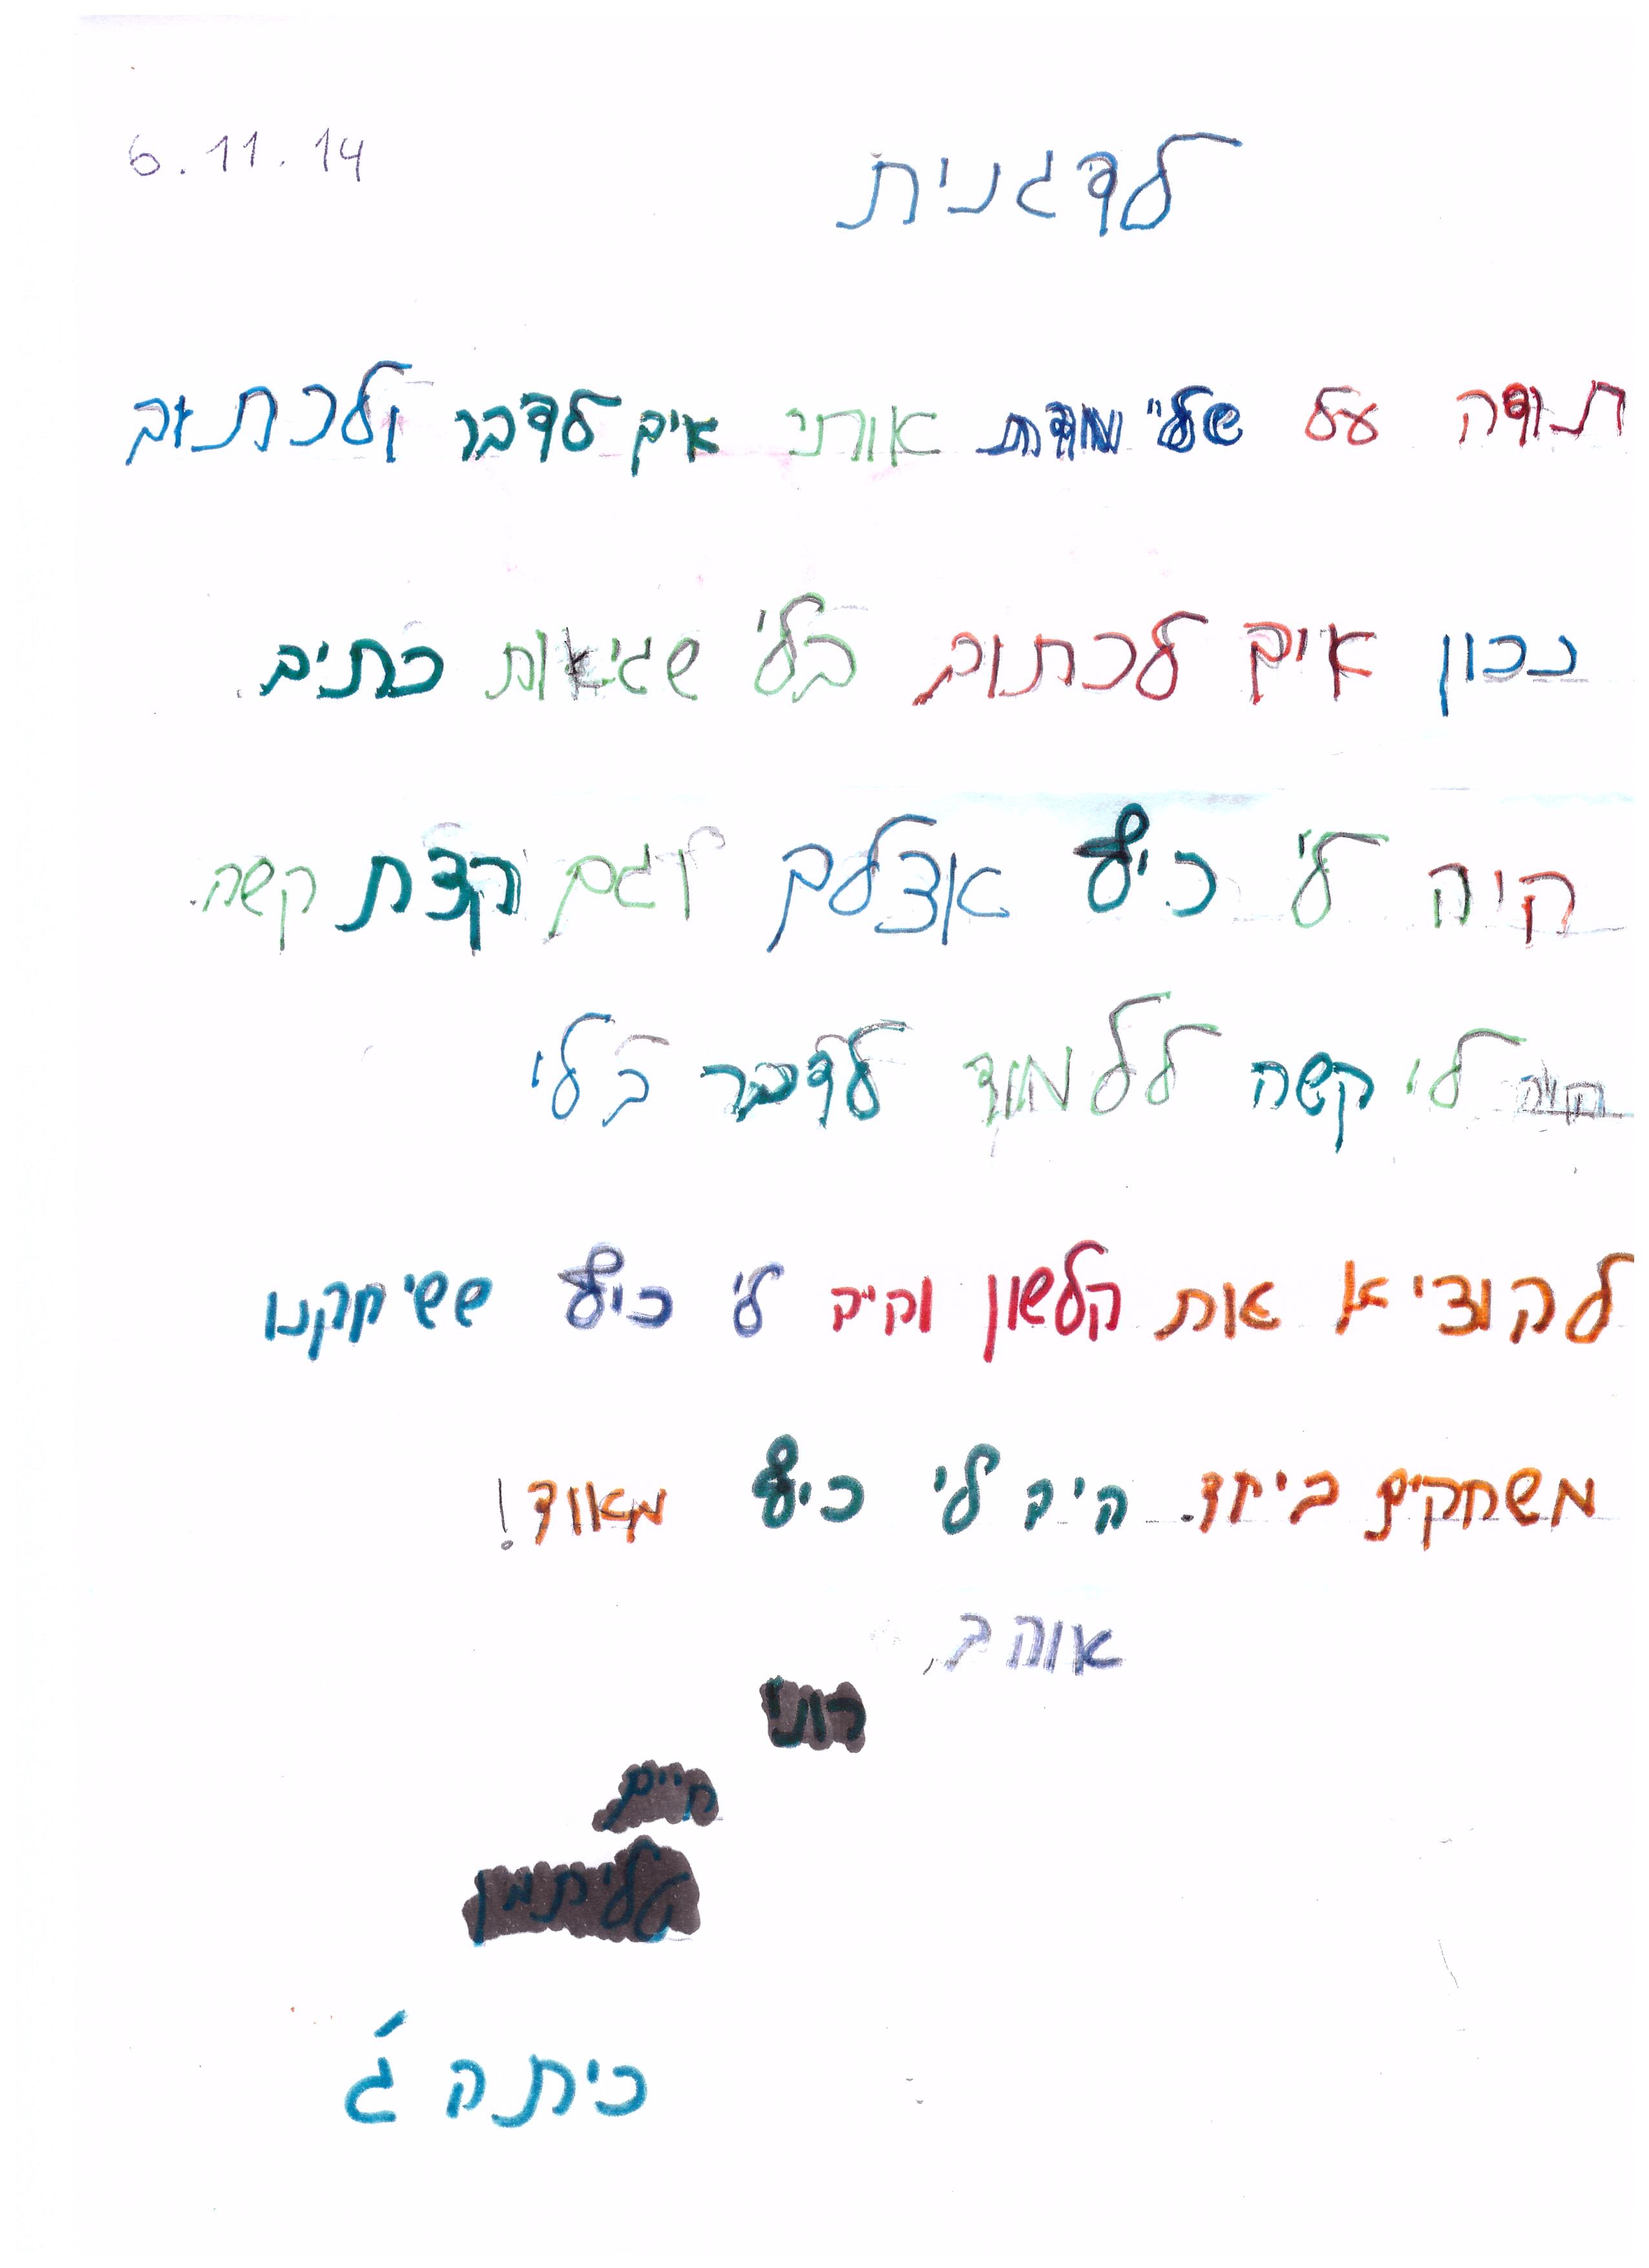 6.11.14
לדגנית
תודה על שלימדת אותי איך לדבר ולכתוב
נכון איך לכתוב בלי שגיאות כתיב.
היה לי כיף אצלך וגם קצת קשה.
היה לי קשה ללמוד לדבר בלי
להוציא את הלשון והיה לי כיף ששיחקנו
משחקים ביחד. היה לי כיף מאוד!
אוהב,
כיתה ג'